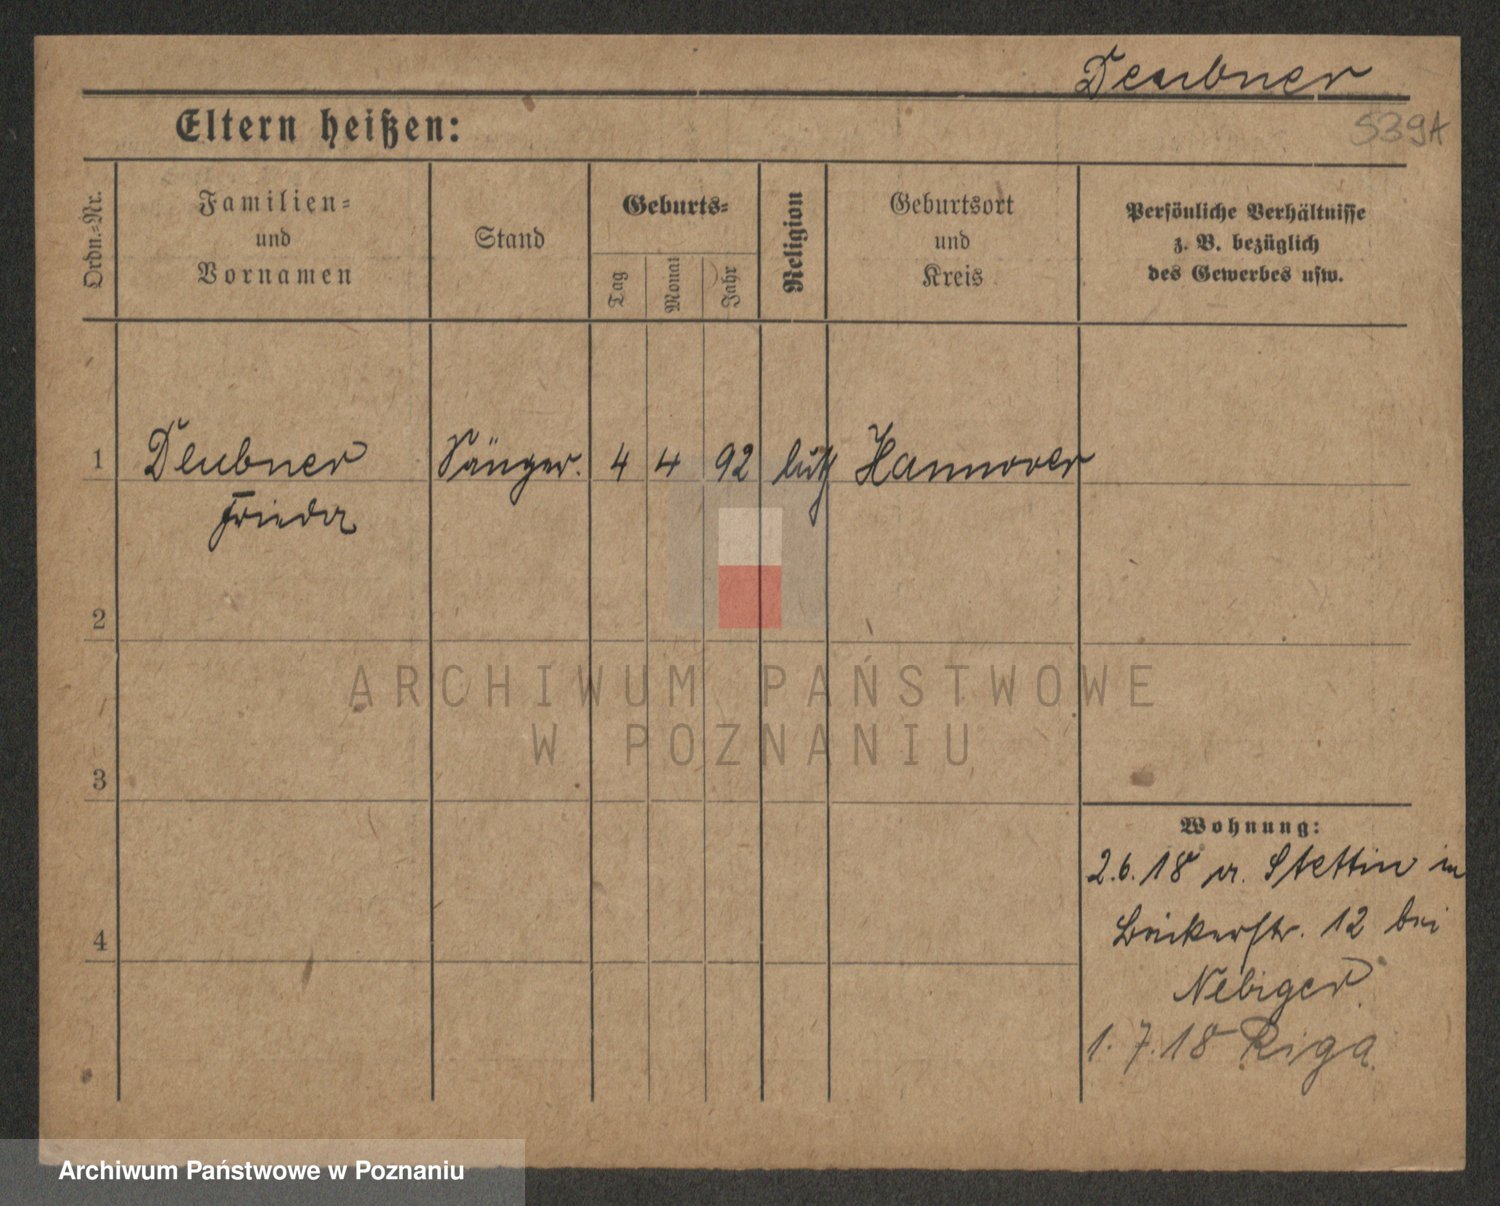 Deubner
539A
Eltern heißen:
Ordn.-Nr.
Familien-
und
Vornamen
Stand
Geburts-
Tag
Monat
Jahr
Religion
Geburtsort
und
Kreis
Persönliche Verhältnisse
z. B. bezüglich
des Gewerbes usw.
1 Deubner Sänger. 4 4 92 luth Hannover
Frieda
2
ARCHIWUM PAŃSTWOWE
W POZNANIU
3
Wohnung:
2.6.18 v. Stettin in
Bäckerstr. 12 bei
4
Nebiger
1.7.18 Riga
Archiwum Państwowe w Poznaniu